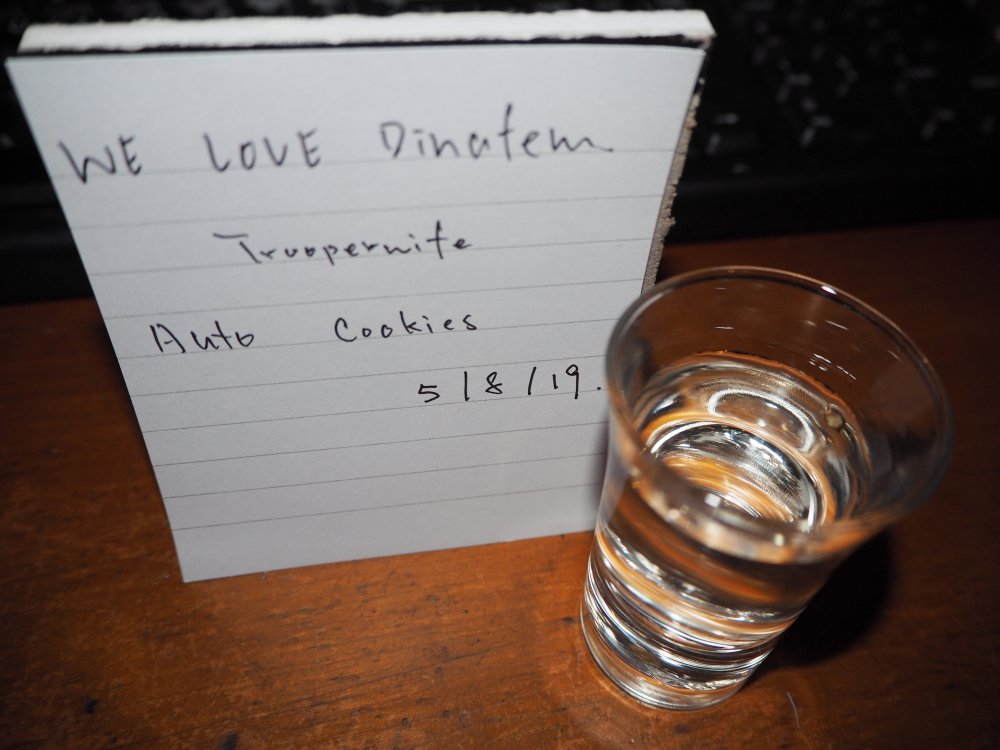 WE LOVE Dinafem
Truopernife
Auto Cookies
5/8/19.